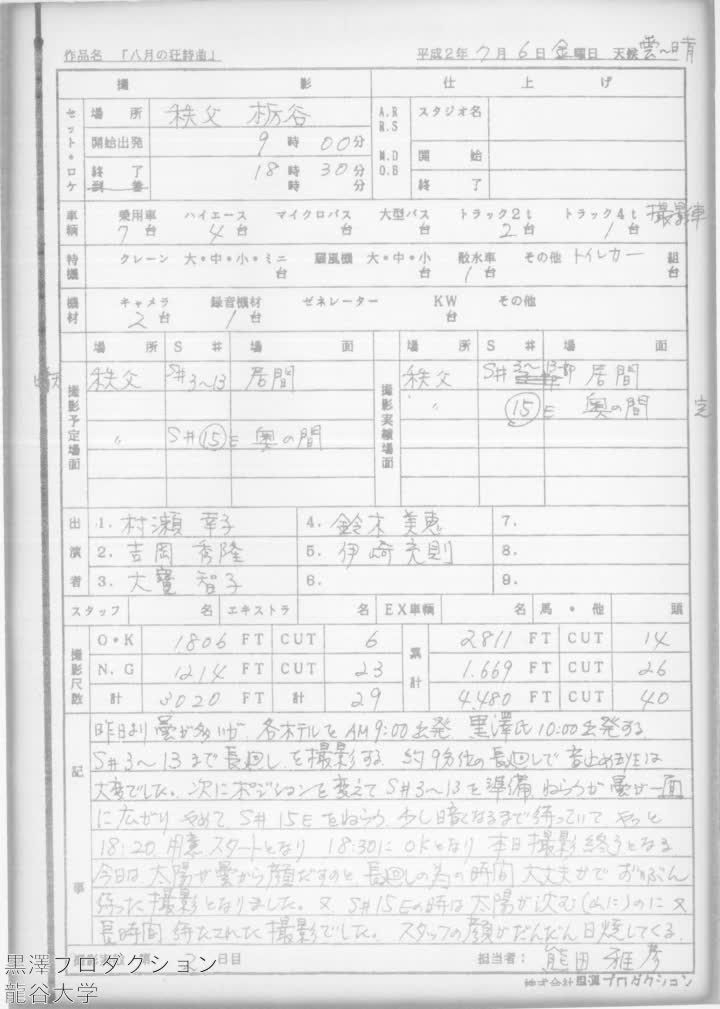 作品名 「八月の狂詩曲」 平成2年 7月 6日 金曜日 天候 雲〜晴
撮影 仕上げ
セット・ロケ 場所 秩父 栃谷 A.R R.S スタジオ名
開始出発 9時 00分 M.D D.B 開始
終了 18時 30分 終了
到着 時 分
車輌 乗用車 7台 ハイエース 4台 マイクロバス 台 大型バス 台 トラック2t 2台 トラック4t 1台 撮影車
特機 クレーン 大・中・小・ミニ 台 扇風機 大・中・小 台 散水車 1台 その他 トイレカー 組 台
機材 キャメラ 2台 録音機材 1台 ゼネレーター KW 台 その他
場所 S# 場面 場所 S# 場面
撮影予定場面 秩父 S#3〜13 居間 撮影実績場面 秩父 S#3〜13 部 居間
〃 15E 奥の間
〃 S#15E 奥の間
出演者 1. 村瀬 幸子 4. 鈴木 美恵 7.
2. 吉岡 秀隆 5. 伊崎 充則 8.
3. 大寶 智子 6. 9.
スタッフ 名 エキストラ 名 EX車輌 名 馬・他 頭
撮影尺数 O・K 1806 FT CUT 6 累計 2811 FT CUT 14
N.G 1214 FT CUT 23 1.669 FT CUT 26
計 3020 FT 計 29 4.480 FT CUT 40
記事 昨日より曇が多いが 各ホテルをAM9:00出発 黒澤氏10:00出発する
S#3〜13まで長回しを撮影する 約9分位の長回しで
大変でした。次にポジションを変えてS#3〜13を準備 ねらうが曇が一面
に広がり やめて S#15Eをねらう 少し暗くなるまで待っていて やっと
18:20 用意スタートとなり 18:30にOKとなり 本日撮影終了となる
今日は太陽が曇から顔だすのと 長回しの為の時間 大丈夫かで
待った撮影となりました。又 S#15Eの時は太陽が沈む(山に)のに又
長時間 待たされた撮影でした。スタッフの顔がだんだん日焼してくる。
第 3 日目 担当者: 熊田 雅彦
株式会社黒澤プロダクション
黒澤プロダクション
龍谷大学